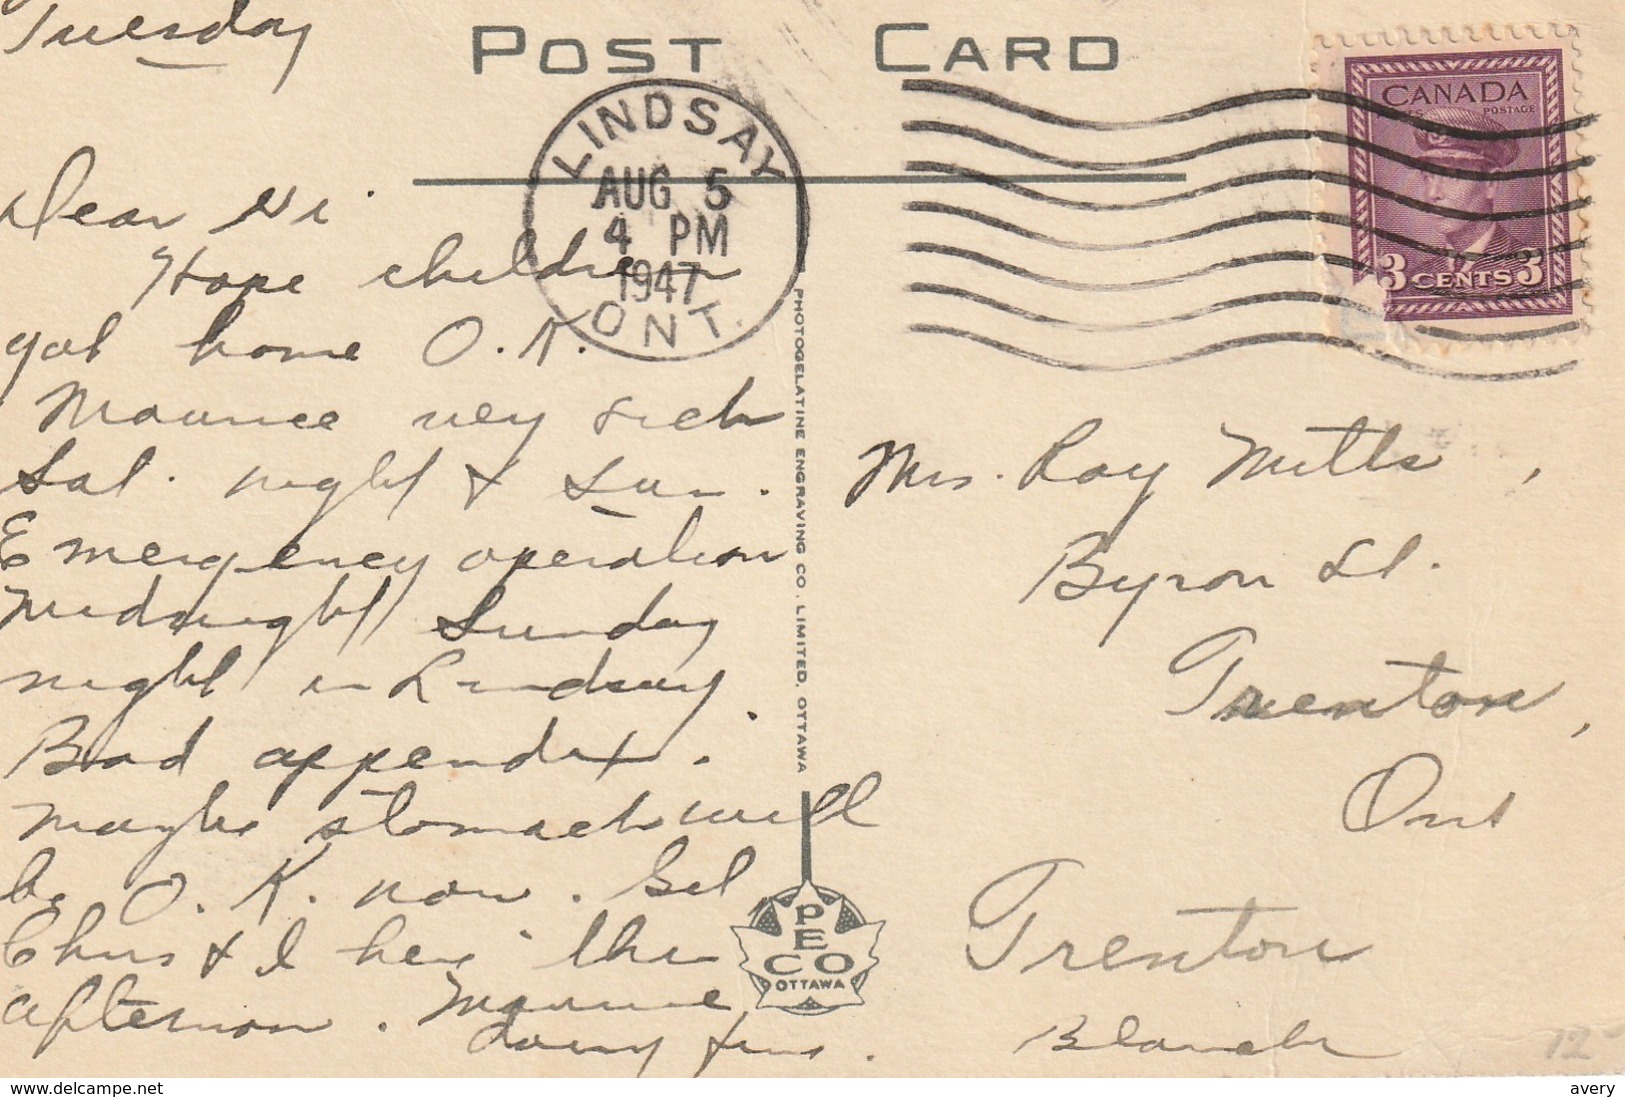 Tuesday
POST CARD
LINDSAY
AUG 5
4 PM
1947
ONT.
CANADA
POSTAGE
3 CENTS 3
Dear
Hope children
got home O.K.
Maurice very sick
Sat. night & Sun.
Emergency operation
midnight Sunday
night in Lindsay.
Bad appendix.
Maybe stomach will
be O.K. now.
Chris & I here this
afternoon. Maurice
doing fine.
Blanche
Mrs. Roy Mills,
Byron St.
Trenton,
Ont
Trenton
PHOTOGELATINE ENGRAVING CO. LIMITED, OTTAWA
PECO
OTTAWA
12
https://www.delcampe.net
avery